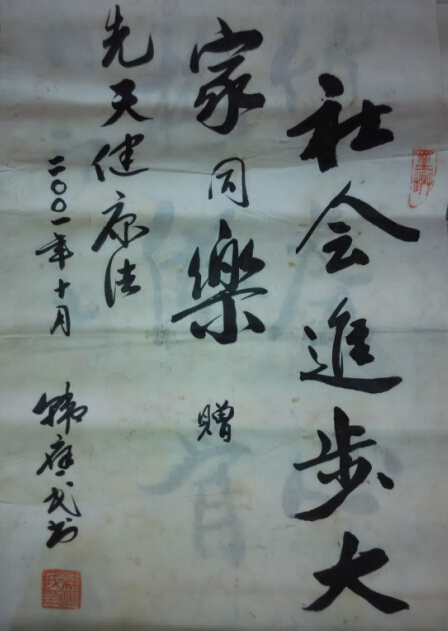 社会進步大
家同樂 贈
先天健康法
二〇〇一年十月